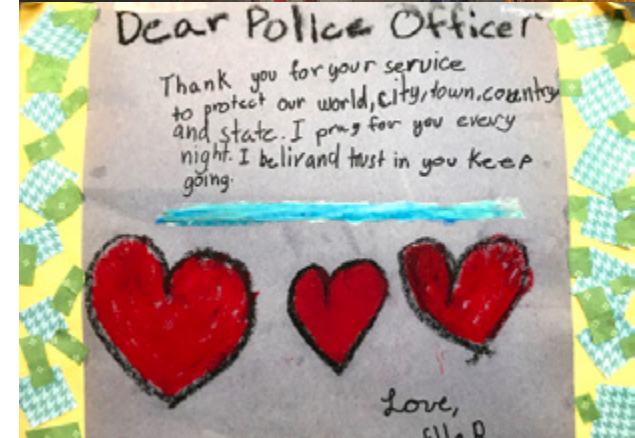 Dear Police Officer
Thank you for your service
to protect our world, city, town, country
and state. I pray for you every
night. I belirand trust in you keep
going.
Love,
Ella D